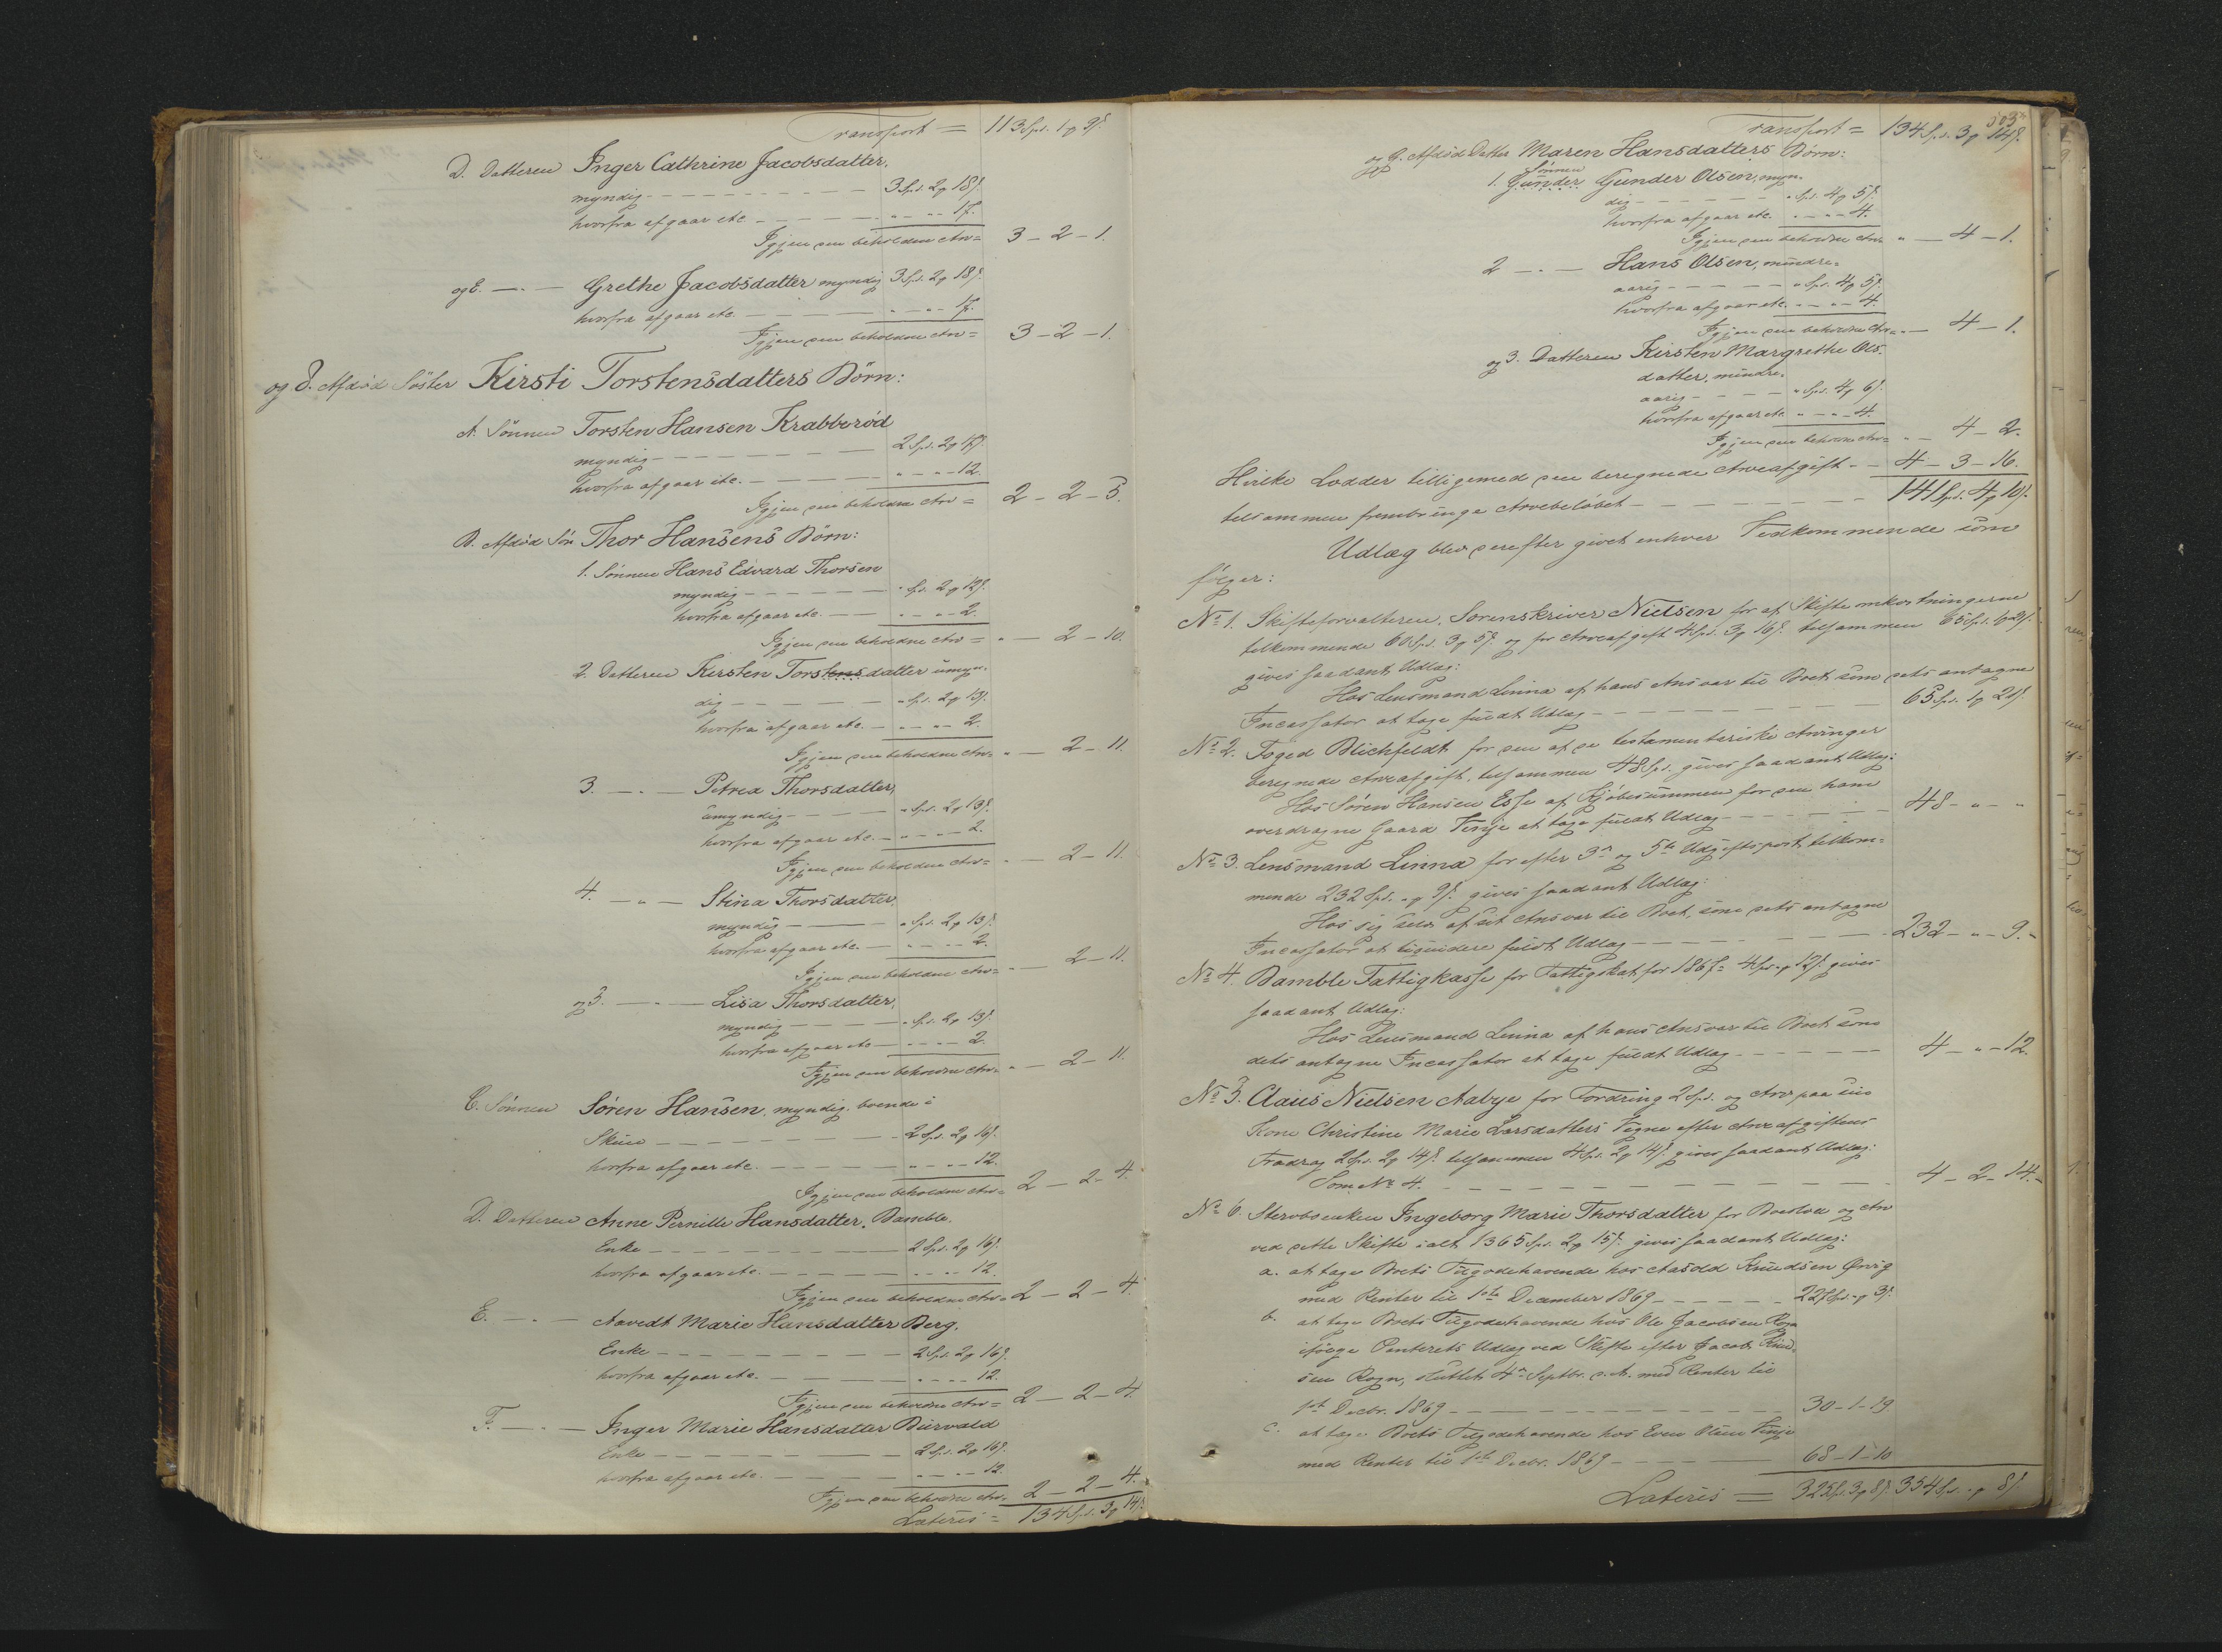 Transport = 113 Spd. 1 ꝗ 9 ß.
D. Datteren Inger Cathrine Jacobsdatter,
myndig - - - 3 Spd. 2 ꝗ 18 ß.
hvorfra afgaar etc. - - - " - " - 17.
Igjen den beholdne Arv = 3 - 2 - 1.
og E. — " — Grethe Jacobsdatter myndig 3 Spd. 2 ꝗ 18 ß.
hvorfra afgaar etc. - - - " - " - 17.
Igjen den beholdne Arv = 3 - 2 - 1.
og d. Afdød Søster Kirsti Torstensdatters Børn:
A. Sønnen Torsten Hansen Krabberød
myndig - - - 2 Spd. 2 ꝗ 17 ß.
hvorfra afgaar etc. - - - " - " - 12.
Igjen den beholdne Arv = 2 - 2 - 5.
B. Afdød Søn Thor Hansens Børn:
1. Sønnen Hans Edvard Thorsen
myndig - - - " Spd. 2 ꝗ 12 ß.
hvorfra afgaar etc. - - - " - " - 2.
Igjen den beholdne Arv = " - 2 - 10.
2. Datteren Kirsten Torstensdatter umyn-
dig - - - " Spd. 2 ꝗ 13 ß.
hvorfra afgaar etc. - - - " - " - 2.
Igjen den beholdne Arv = " - 2 - 11.
3. — " — Petrea Thorsdatter,
umyndig - - - " Spd. 2 ꝗ 13 ß.
hvorfra afgaar etc. - - - " - " - 2.
Igjen den beholdne Arv = " - 2 - 11.
4. — " — Stina Thorsdatter,
myndig - - - " Spd. 2 ꝗ 13 ß.
hvorfra afgaar etc. - - - " - " - 2.
Igjen den beholdne Arv = " - 2 - 11.
og 5. — " — Lisa Thorsdatter,
myndig - - - " Spd. 2 ꝗ 13 ß.
hvorfra afgaar etc. - - - " - " - 2.
Igjen den beholdne Arv = " - 2 - 11.
C. Sønnen Søren Hansen, myndig, boende i
Skien - - - 2 Spd. 2 ꝗ 16 ß.
hvorfra afgaar etc. - - - " - " - 12.
Igjen den beholdne Arv = 2 - 2 - 4.
D. Datteren Anne Pernille Hansdatter, Bamble,
Enke - - - 2 Spd. 2 ꝗ 16 ß.
hvorfra afgaar etc. - - - " - " - 12.
Igjen den beholdne Arv = 2 - 2 - 4.
E. — " — Aavedt Marie Hansdatter Berg,
Enke - - - 2 Spd. 2 ꝗ 16 ß.
hvorfra afgaar etc. - - - " - " - 12.
Igjen den beholdne Arv = 2 - 2 - 4.
F. — " — Inger Marie Hansdatter
Enke - - - 2 Spd. 2 ꝗ 16 ß.
hvorfra afgaar etc. - - - " - " - 12.
Igjen den beholdne Arv = 2 - 2 - 4.
Lateris = 134 Spd. 3 ꝗ 14 ß.
503
Transport = 134 Spd. 3 ꝗ 14 ß.
og G. Afdød Datter Maren Hansdatters Børn:
1. Sønnen Gunder Gunder Olsen, myn-
dig - - - " Spd. 4 ꝗ 5 ß.
hvorfra afgaar etc. - " - " - 4.
Igjen den beholdne Arv = " - 4 - 1.
2 — " — Hans Olsen, mindre-
aarig - - - " Spd. 4 ꝗ 5 ß.
hvorfra afgaar etc. - " - " - 4.
Igjen den beholdne Arv = " - 4 - 1.
og 3. Datteren Kirsten Margrethe Ols-
datter, mindre-
aarig - - - " Spd. 4 ꝗ 6 ß.
hvorfra afgaar etc. " - " - 4.
Igjen den beholdne Arv = " - 4 - 2.
Hvilke Lodder tilligemed den beregnede Arveafgift - - 4 - 3 - 16.
tilsammen frembringe Arvebeløbet - - - 141 Spd. 4 ꝗ 10 ß.
Udlæg blev derefter givet enhver Vedkommende som
følger:
No 1. Skifteforvalteren, Sorenskriver Nielsen for af Skifteomkostningerne
tilkommende 60 Spd. 3 ꝗ 5 ß. og for Arveafgift 4 Spd. 3 ꝗ 16 ß. tilsammen 65 Spd. 1 ꝗ 21 ß.
gives saadant Udlæg:
Hos Lensmand Linna af hans Ansvar til Boet som dets antagne
Incassator at tage fuldt Udlæg - - - 65 Spd. 1 ꝗ 21 ß.
No 2. Foged Blichfeldt for den af de testamentariske Arvinger
beregnede Arveafgift, tilsammen 48 Spd. gives saadant Udlæg:
Hos Søren Hansen Esse af Kjøbesummen for den ham
overdragne Gaard Vinje at tage fuldt Udlæg - - - 48 - " - "
No 3. Lensmand Linna for efter 3die og 5te Udgiftspost tilkom-
mende 232 Spd. " ꝗ 9 ß. gives saadant Udlæg:
Hos sig selv af sit Ansvar til Boet, som dets antagne
Incassator at liquidere fuldt Udlæg - - - 232 - " - 9.
No 4. Bamble Fattigkasse for Fattigskat for 1867 = 4 Spd. " ꝗ 12 ß. gives
saadant Udlæg:
Hos Lensmand Linna af hans Ansvar til Boet som
dets antagne Incassator at tage fuldt Udlæg - - - 4 - " - 12.
No 5. Claus Nielsen Aabye for Fordring 2 Spd. og Arv paa sin
Kone Christine Marie Larsdatters Vegne efter Arveafgiftens
Fradrag 2 Spd. 2 ꝗ 14 ß. tilsammen 4 Spd. 2 ꝗ 14 ß. gives saadant Udlæg:
Som No 4. - - - 4 - 2 - 14.
No 6. Stervboenken Ingeborg Marie Thorsdatter for Boeslod og Arv
ved dette Skifte ialt 1365 Spd. 2 ꝗ 15 ß. gives saadant Udlæg:
a. at tage Boets Tilgodehavende hos Aasold Knudsen Ørvig
med Renter til 1ste December 1869 - - - 227 Spd. " ꝗ 3 ß.
b. at tage Boets Tilgodehavende hos Ole Jacobsen Rogn
ifølge Panterets Udlæg ved Skifte efter Jacob Knud-
sen Rogn, sluttet 4de Septbr. d. A. med Renter til
1ste Decbr. 1869 - - - 30 - 1 - 19
c. at tage Boets Tilgodehavende hos Even Olsen Vinje
med Renter til 1ste Decbr. 1869 - - - 68 - 1 - 10
Lateris = 325 Spd. 3 ꝗ 8 ß. 354 Spd. " ꝗ 8 ß.